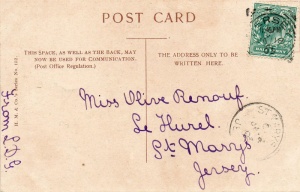 POST CARD
THIS SPACE, AS WELL AS THE BACK, MAY
NOW BE USED FOR COMMUNICATION.
(Post Office Regulation.)
THE ADDRESS ONLY TO BE
WRITTEN HERE.
Miss Olive Renouf
Le Hurel
St Marys
Jersey.
From